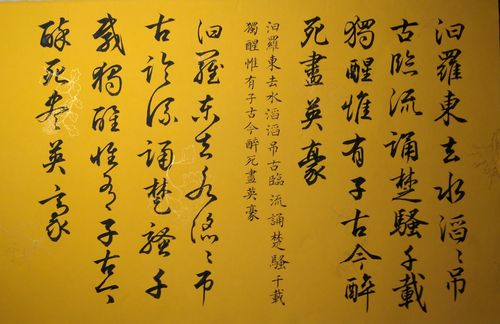 汨羅東去水滔〻吊
古臨流誦楚騷千載
獨醒惟有子古今醉
死盡英豪
汨羅東去水滔滔吊古臨流誦楚騷千載
獨醒惟有子古今醉死盡英豪
汨羅東去水滔〻吊
古臨流誦楚騷千
載獨醒惟有子古今
醉死盡英豪